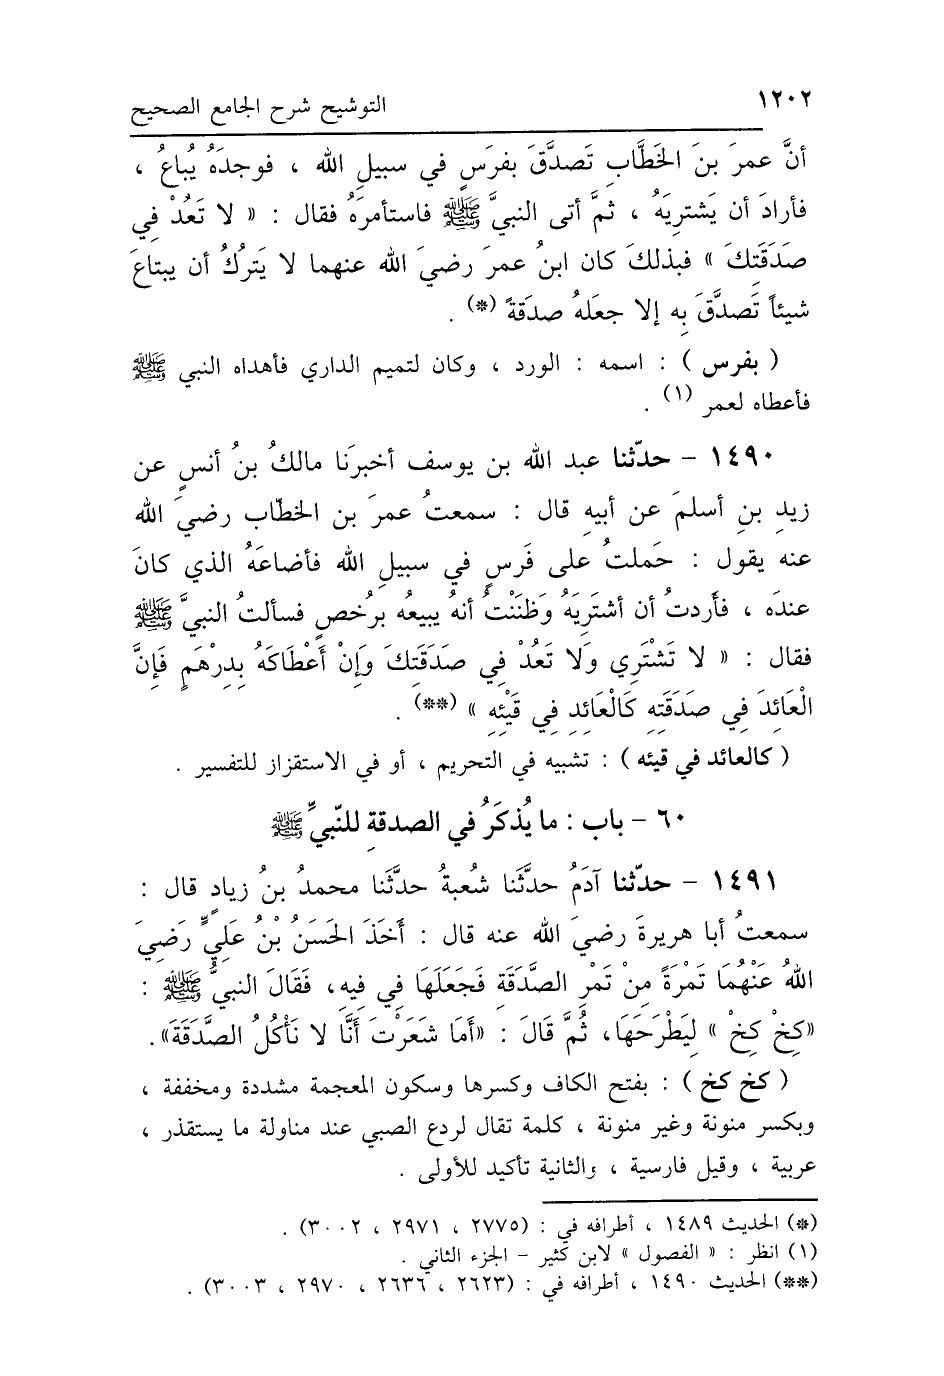 ١٢٠٢
التوشيح شرح الجامع الصحيح
أنَّ عمرَ بنَ الخَطَّابِ تَصدَّقَ بفرَسٍ في سبيلِ الله ، فوجدَهُ يُباعُ ،
فأرادَ أن يَشتريَهُ ، ثمَّ أتى النبيَّ ﷺ فاستأمرَهُ فقال : « لا تَعُدْ فِي
صَدَقَتِكَ » فبذلكَ كان ابنُ عمرَ رضيَ الله عنهما لا يَتركُ أن يبتاعَ
شيئاً تَصدَّقَ بِه إلا جعلَهُ صدَقةً (*) .
( بفرس ) : اسمه : الورد ، وكان لتميم الداري فأهداه النبي ﷺ
فأعطاه لعمر (١) .
١٤٩٠ - حدّثنا عبد الله بن يوسف أخبرَنا مالكُ بنُ أنسٍ عن
زيدِ بنِ أسلمَ عن أبيهِ قال : سمعتُ عمرَ بن الخطّاب رضيَ الله
عنه يقول : حَملتُ على فَرسٍ في سبيلِ الله فأضاعَهُ الذي كانَ
عندَه ، فأَردتُ أن أشتَريَهُ وَظنَنْتُ أنهُ يبيعُه برُخصٍ فسألتُ النبيَّ ﷺ
فقال : « لا تَشْتَرِي وَلا تَعُدْ فِي صَدَقَتِكَ وَإِنْ أَعْطَاكَهُ بِدِرْهَمٍ فَإِنَّ
الْعَائِدَ فِي صَدَقَتِهِ كَالْعَائِدِ فِي قَيْئِهِ » (**) .
( كالعائد في قيئه ) : تشبيه في التحريم ، أو في الاستقزاز للتفسير .
٦٠ - باب : ما يُذكَرُ في الصدقةِ للنّبيِّ ﷺ
١٤٩١ - حدّثنا آدَمُ حدَّثَنا شُعبةُ حدَّثَنا محمدُ بنُ زيادٍ قال :
سمعتُ أبا هريرةَ رضيَ الله عنه قال : أَخَذَ الحَسَنُ بْنُ عَلِيٍّ رَضِيَ
اللهُ عَنْهُمَا تَمْرَةً مِنْ تَمْرِ الصَّدَقَةِ فَجَعَلَهَا فِي فِيهِ، فَقَالَ النبيُّ ﷺ :
«كِخْ كِخْ » لِيَطْرَحَهَا، ثُمَّ قَالَ : «أَمَا شَعَرْتَ أَنَّا لا نَأْكُلُ الصَّدَقَةَ».
( كخ كخ ) : بفتح الكاف وكسرها وسكون المعجمة مشددة ومخففة ،
وبكسر منونة وغير منونة ، كلمة تقال لردع الصبي عند مناولة ما يستقذر ،
عربية ، وقيل فارسية ، والثانية تأكيد للأولى .
(*) الحديث ١٤٨٩ ، أطرافه في : (٢٧٧٥ ، ٢٩٧١ ، ٣٠٠٢) .
(١) انظر : « الفصول » لابن كثير - الجزء الثاني .
(**) الحديث ١٤٩٠ ، أطرافه في : (٢٦٢٣ ، ٢٦٣٦ ، ٢٩٧٠ ، ٣٠٠٣) .